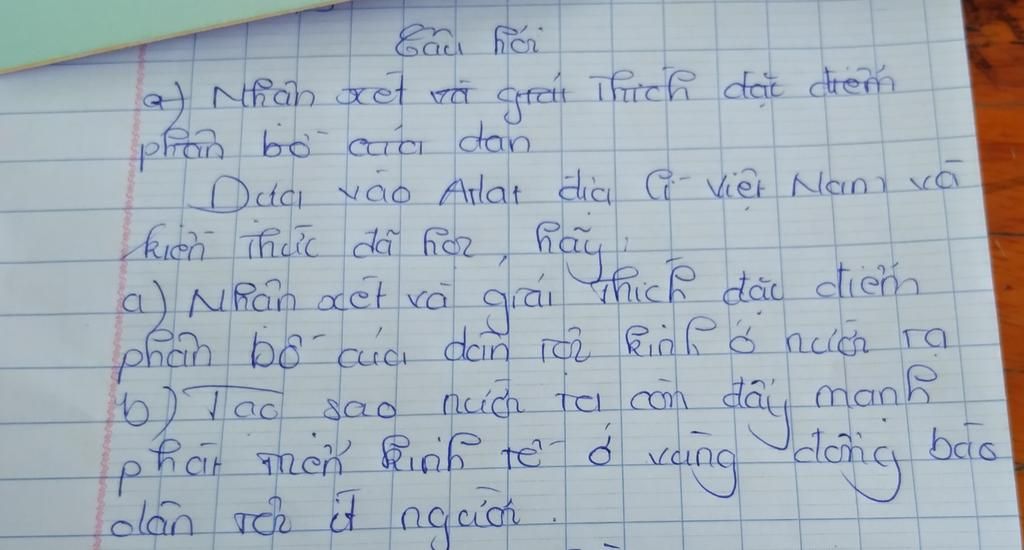 Câu hỏi
a) Nhận xét và giải thích đặc điểm
phân bố của dân
Dựa vào Atlat địa lí Việt Nam và
kiến thức đã học, hãy:
a) Nhận xét và giải thích đặc điểm
phân bố của dân tộc kinh ở nước ta
b) Tại sao nước ta cần đẩy mạnh
phát triển kinh tế ở vùng đồng bào
dân tộc ít người.